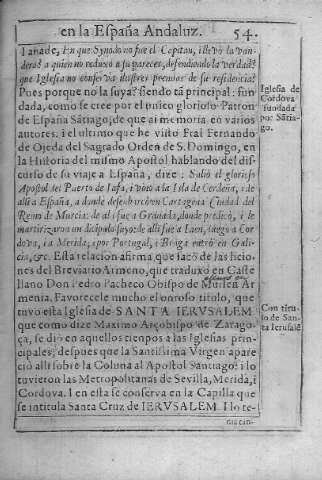 en la España Andaluz. 54.
I añade, En que Synodo no fue el Capitan, i llevò la van-
dera? a quien no reduxo a su parecer, defendiendo la verdad?
que Iglesia no conserva ilustres premias de su residencia?
Pues porque no la suya? siendo tã principal: fun
dada, como se cree por el unico glorioso Patron
de España Sãtiago, de que ai memoria en varios
autores. i el ultimo que he visto Frai Fernando
de Ojeda del Sagrado Orden de S. Domingo, en
la Historia del mismo Apostol hablando del dis-
curso de su viaje a España, dize: Saliò el glorioso
Apostol del Puerto de Iafa, i vino a la Isla de Cerdeña, i de
alli a España, a donde desembarcò en Cartagena Ciudad del
Reino de Murcia: de al i fue a Granada, donde predicò, i le
martirizaron un dicipulo suyo: de alli fue a Iaen, luego a Cor
dova, i a Merida, i por Portugal, i Braga entrò en Gali-
cia, &c. Esta relacion afirma que sacò de las licio
nes del Breviario Armeno, que traduxo en Caste
llano Don Pedro Pacheco Obispo de Murien Ar
menia. Favorecele mucho el onroso titulo, que
tuvo esta Iglesia de SANTA IERUSALEM
que como dize Maximo Arçobispo de Zarago-
ça, se diò en aquellos tienpos a las Iglesias prin-
cipales, despues que la Santissima Virgen apare
ciò alli sobre la Coluna al Apostol Santiago: i lo
tuvieron las Metropolitanas de Sevilla, Merida, i
Cordova. I en esta se conserva en la Capilla que
se intitula Santa Cruz de IERUSALEM. I lo te-
Iglesia de
Cordova
fundada
por Sãtia-
go.
Con titu-
lo de San-
ta Ierusalẽ